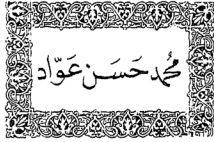 محمد حَسَن عَوّاد